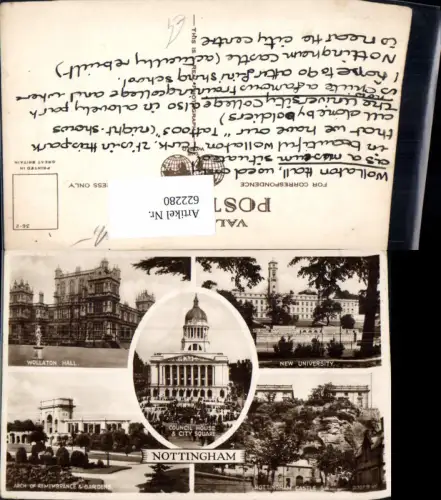 Wollaton Hall, used
as a museum situated
in beautiful wollaton Park. It is in this park
that we have our "Tattoos" (night shows
all done by soldiers)
The University College (also in a lovely park
is quite a famous training college and where
I hope to go after finishing school.
Nottingham Castle (actually rebuilt)
is near the city centre
FOR CORRESPONDENCE
ESS ONLY
VAL
POST
PRINTED IN
GREAT BRITAIN
Artikel Nr.
622280
WOLLATON HALL
NEW UNIVERSITY
COUNCIL HOUSE
& CITY SQUARE
ARCH OF REMEMBRANCE & GARDENS
NOTTINGHAM CASTLE
NOTTINGHAM